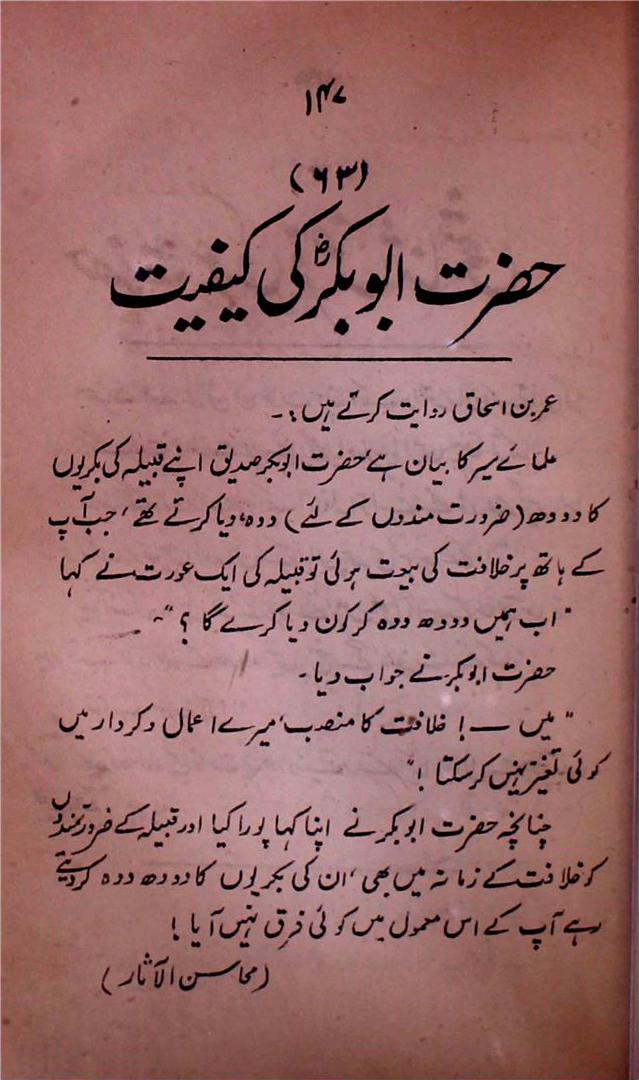 ۱۴۷
(۶۳)
حضرت ابوبکرؓ کی کیفیت
عمر بن اسحاق روایت کرتے ہیں :۔
علمائے سیر کا بیان ہے، حضرت ابوبکر صدیق اپنے قبیلہ کی بکریوں
کا دودھ (ضرورت مندوں کے لئے) دوہ، دیا کرتے تھے، جب آپ
کے ہاتھ پر خلافت کی بیعت ہوئی تو قبیلہ کی ایک عورت نے کہا
"اب ہمیں دودھ دوہ کر کون دیا کرے گا ؟"۔
حضرت ابوبکر نے جواب دیا۔
"میں ــــ! خلافت کا منصب، میرے اعمال و کردار میں
کوئی تغیر نہیں کر سکتا !"
چنانچہ حضرت ابوبکر نے اپنا کہا پورا کیا اور قبیلہ کے ضرورتمندوں
کو خلافت کے زمانہ میں بھی، ان کی بکریوں کا دودھ دوہ کر دیتے
رہے آپ کے اس معمول میں کوئی فرق نہیں آیا !
(محاسن الآثار)